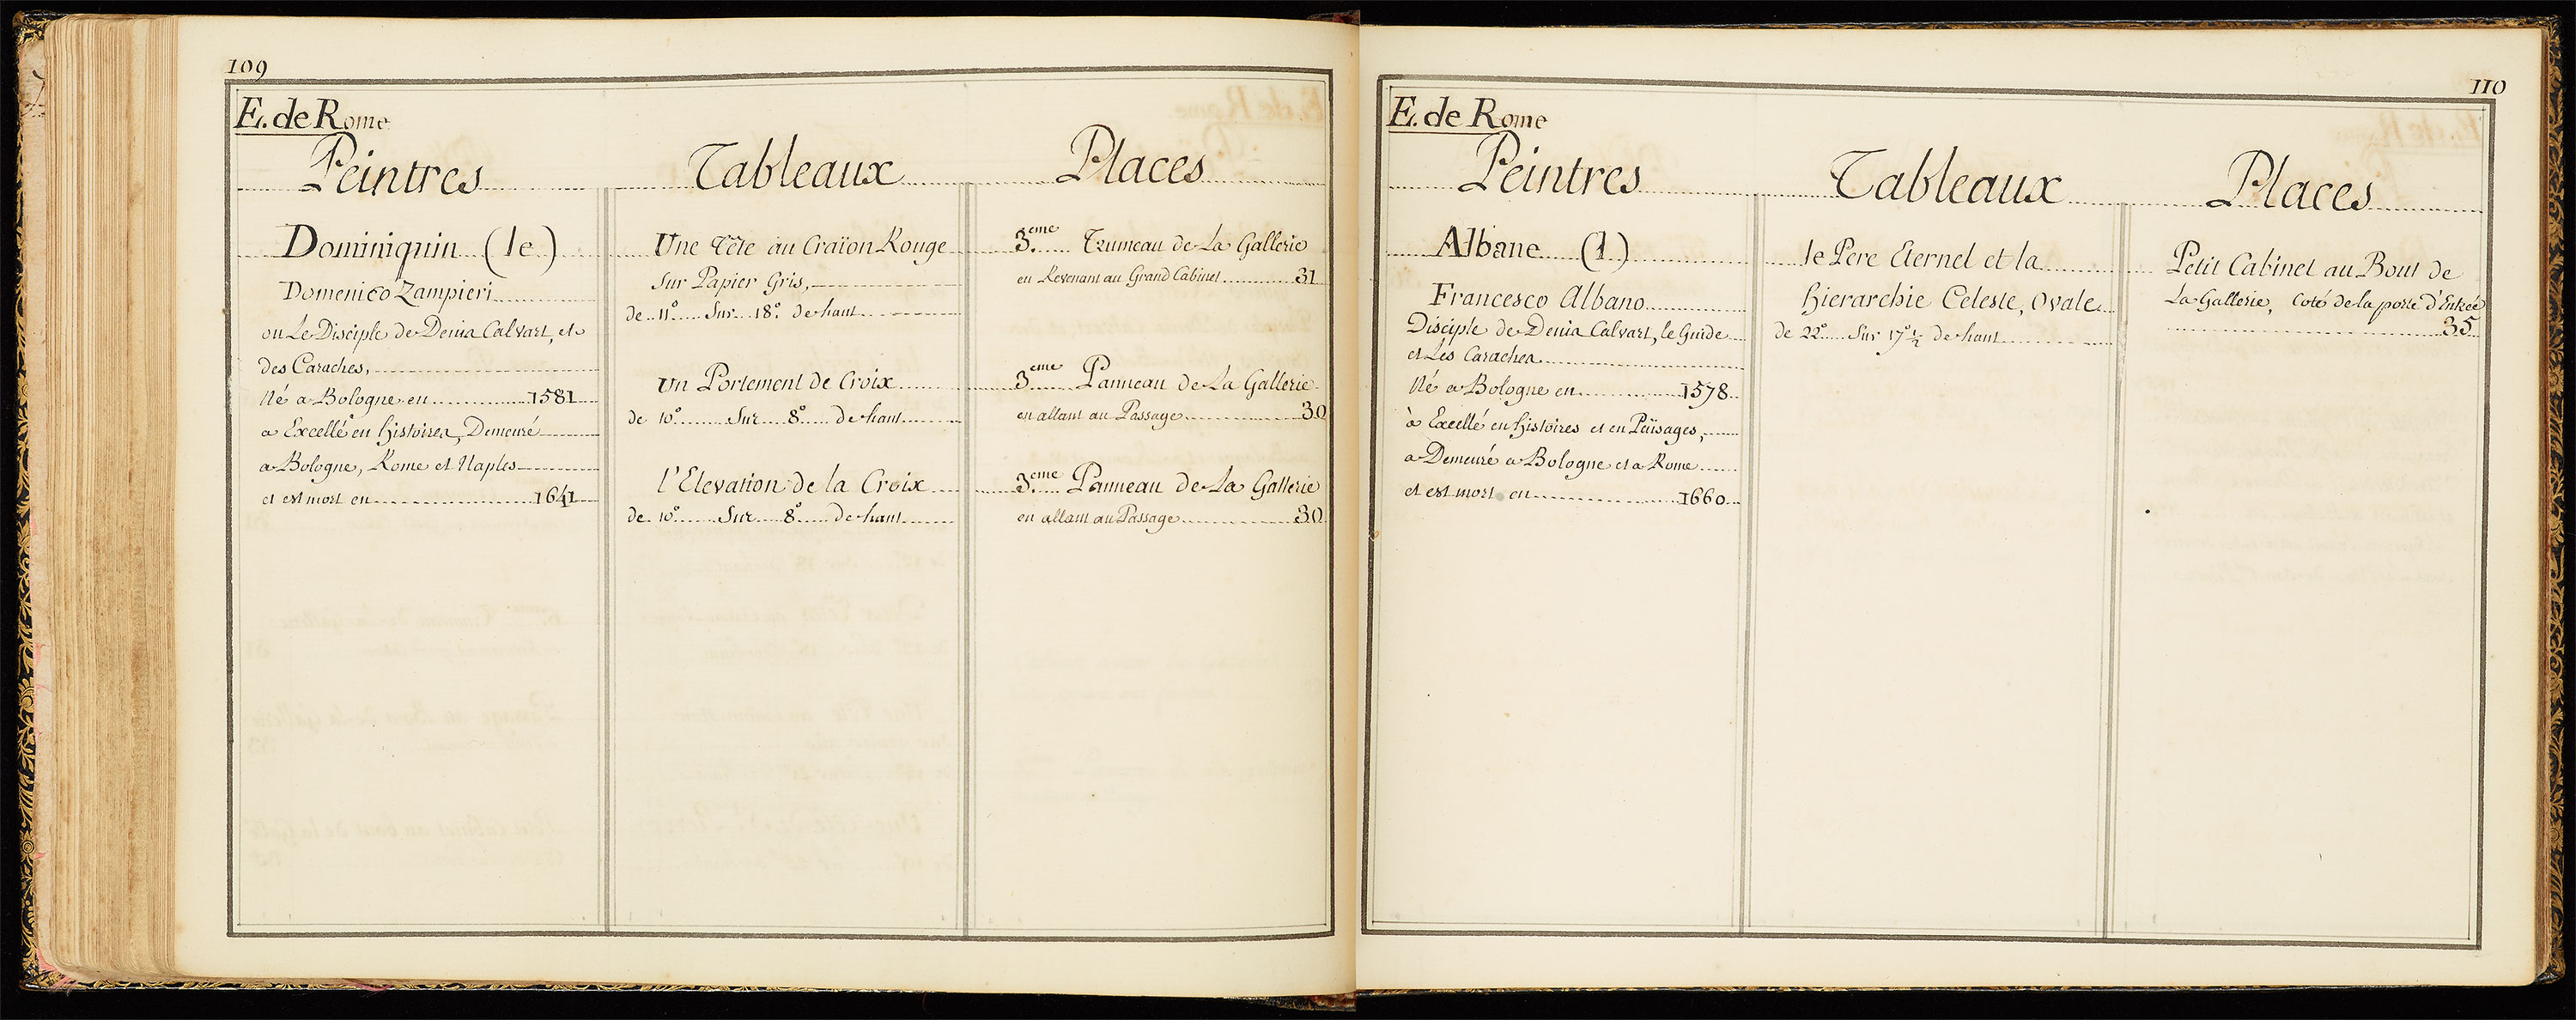 109
E. de Rome
Peintres Tableaux Places
Dominiquin (le)
Domenico Zampieri
ou Le Disciple de Denis Calvart, et
des Caraches,
Né a Bologne en 1581
a Excellé en histoires, Demeuré
a Bologne, Rome et Naples
et est mort en 1641
Une Tête au Craïon Rouge
Sur Papier Gris,
de 11° Sur 18° de haut
Un Portement de Croix
de 10° Sur 8° de haut
l'Elevation de la Croix
de 10° Sur 8° de haut
3.eme Trumeau de La Gallerie
en Revenant au Grand Cabinet 31
3.eme Panneau de La Gallerie
en allant au Passage 30
3.eme Panneau de La Gallerie
en allant au Passage 30
110
E. de Rome
Peintres Tableaux Places
Albane (l)
Francesco Albano
Disciple de Denis Calvart, le Guide
et Les Caraches
Né a Bologne en 1578
à Excellé en histoires et en Païsages,
a Demeuré a Bologne et a Rome
et est mort en 1660
le Pere Eternel et la
hierarchie Celeste, Ovale
de 22° Sur 17° 1/2 de haut
Petit Cabinet au Bout de
La Gallerie, Coté de la porte d'Entreé
35